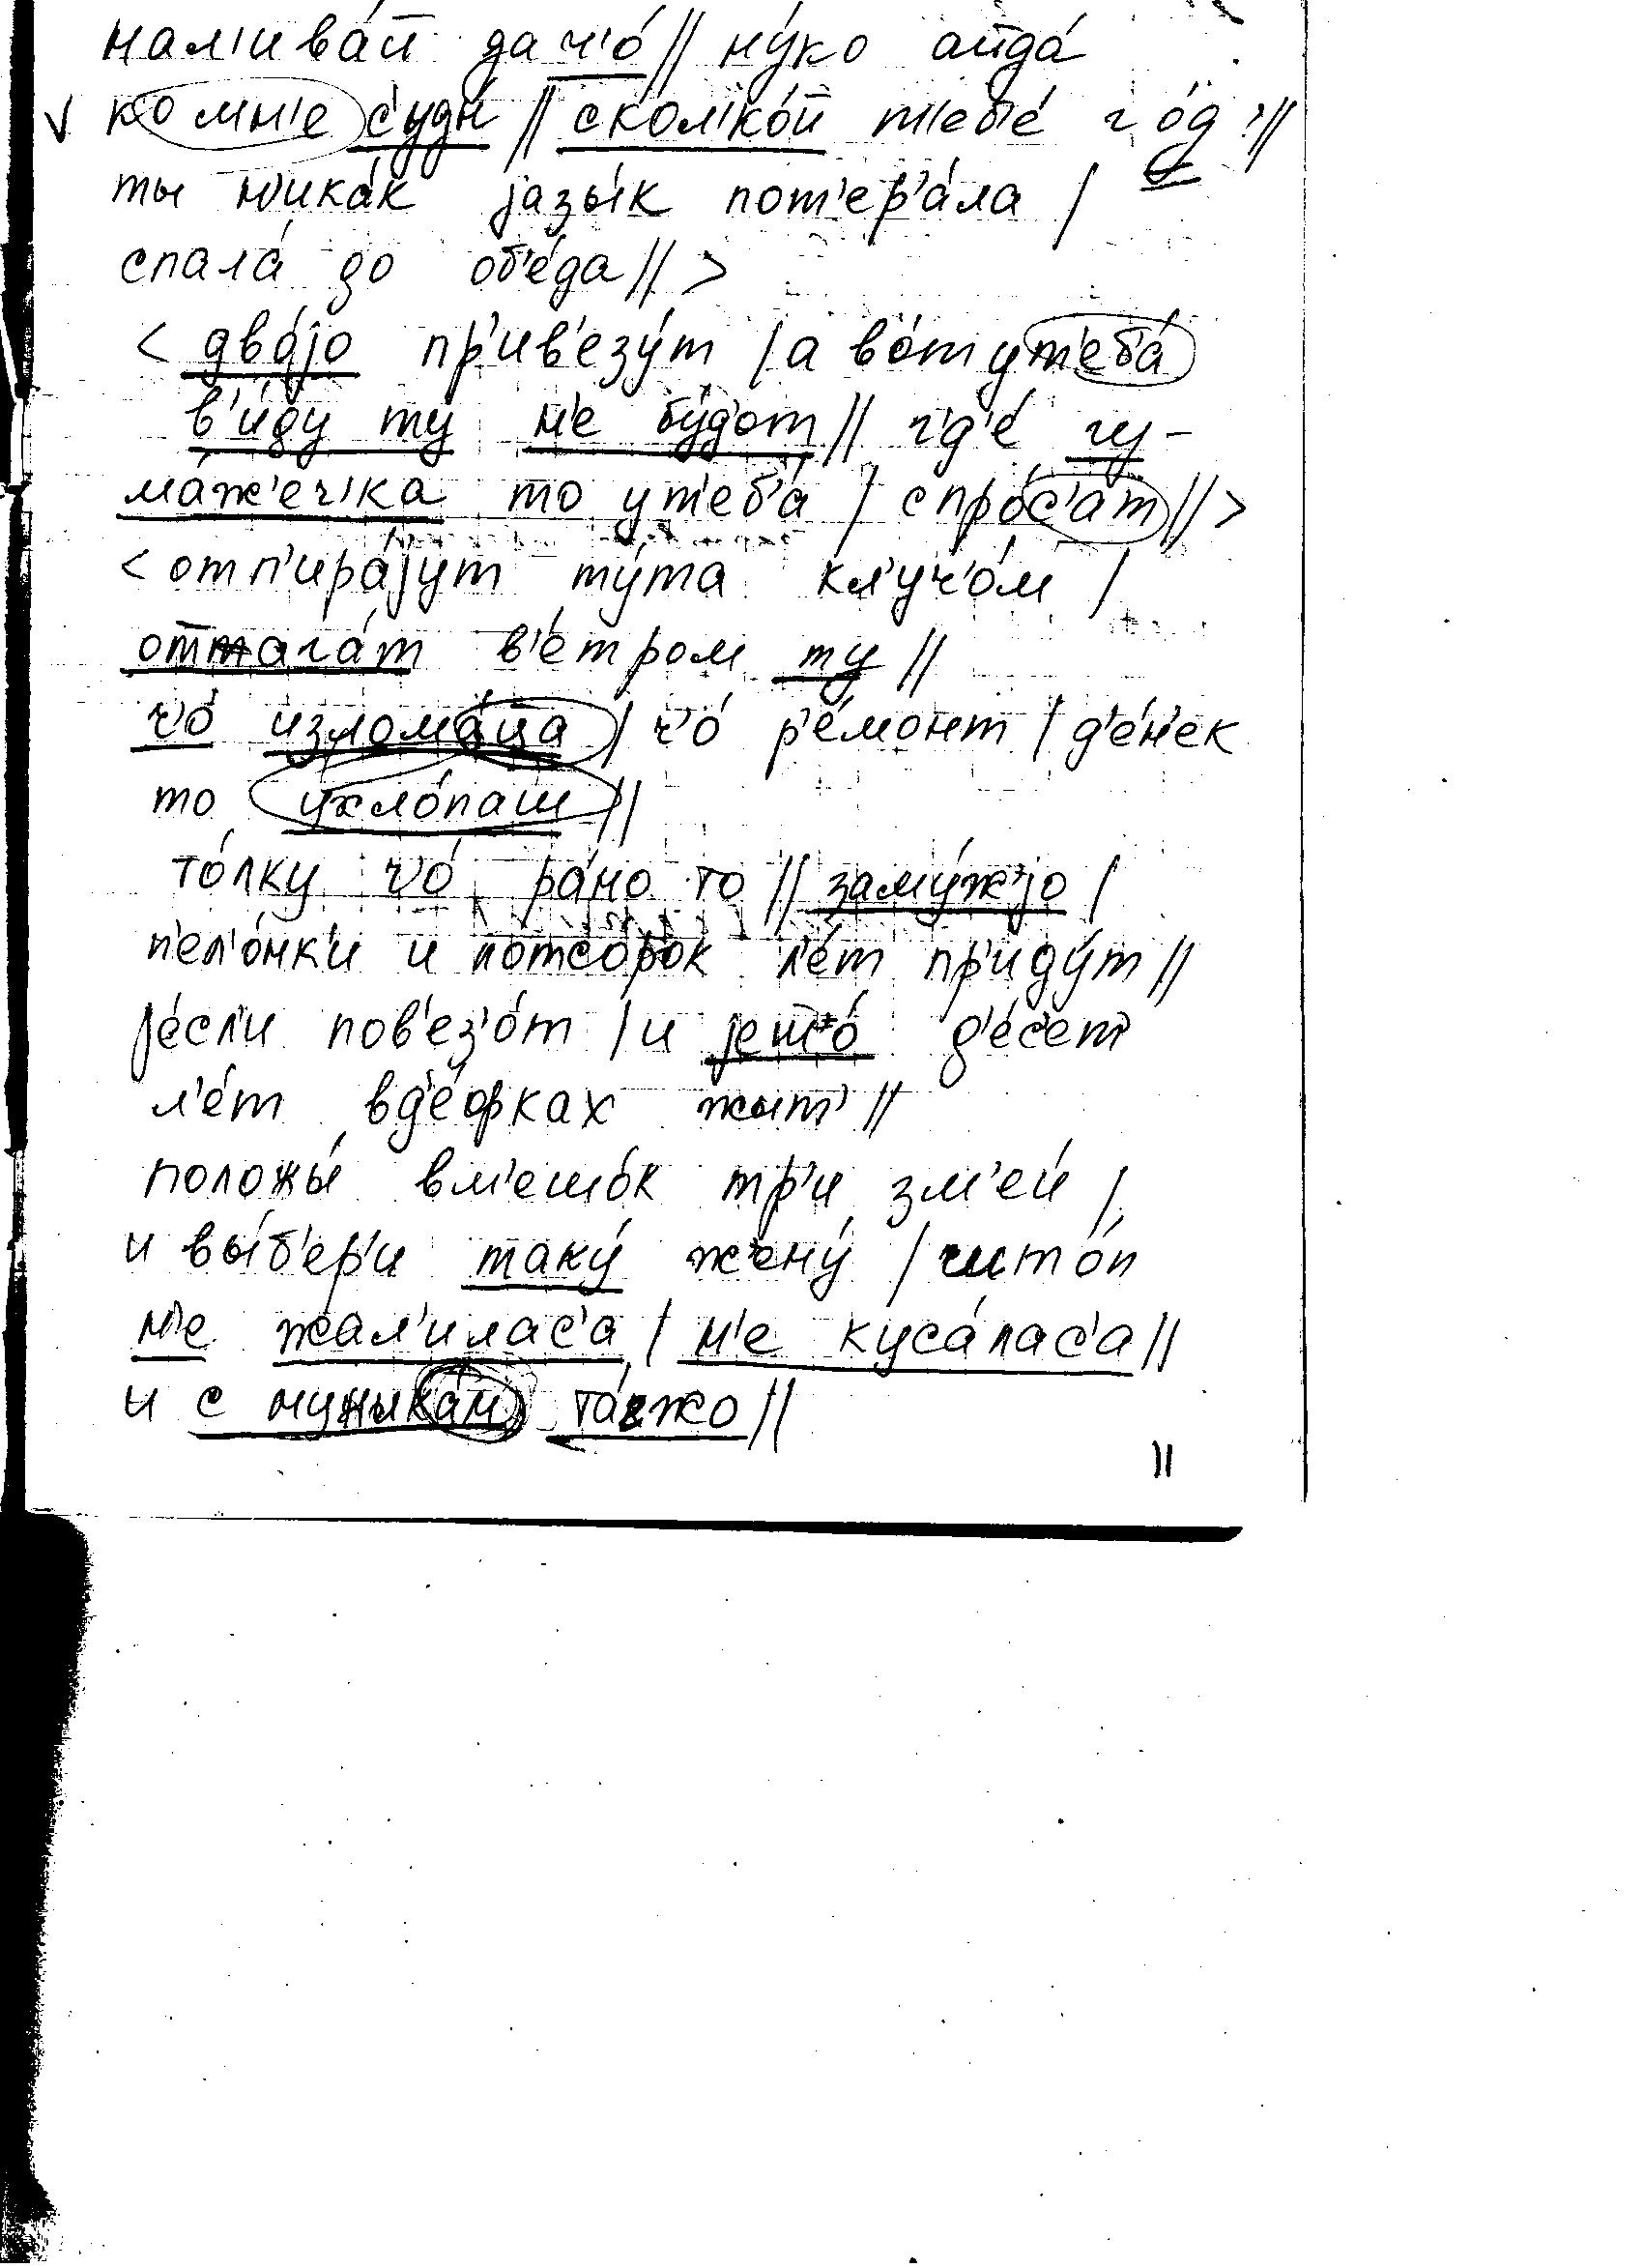 нал'ива́й да ч'о́ // ну́ко айда́
ко мн'е с'уды́ // скол'ко́й т'еб'е́ го́д //
ты н'ика́к jазы́к пот'ер'а́ла /
спала́ до об'е́да // >
< дво́jо пр'ив'езу́т / а во́т у т'еб'а́
в'и́ду ту н'е бу́д'от // г'д'е́ гу-
ма́ж'еч'ка то у т'еб'а́ / спро́с'ат // >
< отп'ира́jут ту́та кл'уч'о́м /
оттага́т в'е́тром ту //
ч'о́ излома́ца / ч'о́ р'е́монт / д'е́н'ек
то ухло́паш //
то́лку ч'о́ ра́но то // заму́ж'jо /
п'ел'о́нк'и и потсо́рок л'е́т пр'иду́т //
jе́сл'и пов'ез'о́т / и jешо́ д'е́с'ет'
л'е́т в д'е́фках жыт' //
положы́ в м'ешо́к тр'и зм'еи́ /
и вы́б'ер'и таку́ жену́ / штоп
н'е жал'илас'а / н'е куса́лас'а //
и с мужыка́м та́кжо //
11